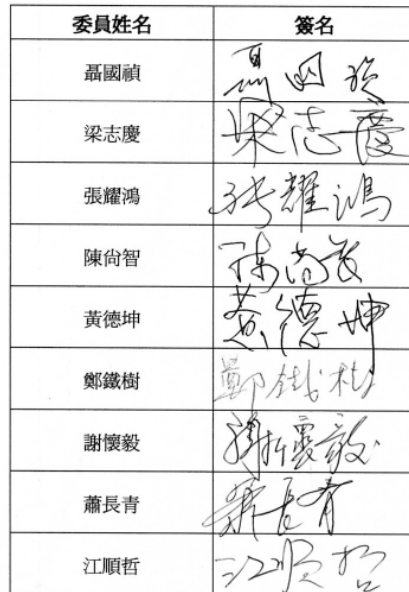 委員姓名 簽名
聶國禎 聶國禎
梁志慶 梁志慶
張耀鴻 张耀鴻
陳尙智 陈尚智
黃德坤 黃德坤
鄭鐵樹 鄭鉄樹
謝懷毅 謝懷毅
蕭長青 蕭長青
江順哲 江順哲